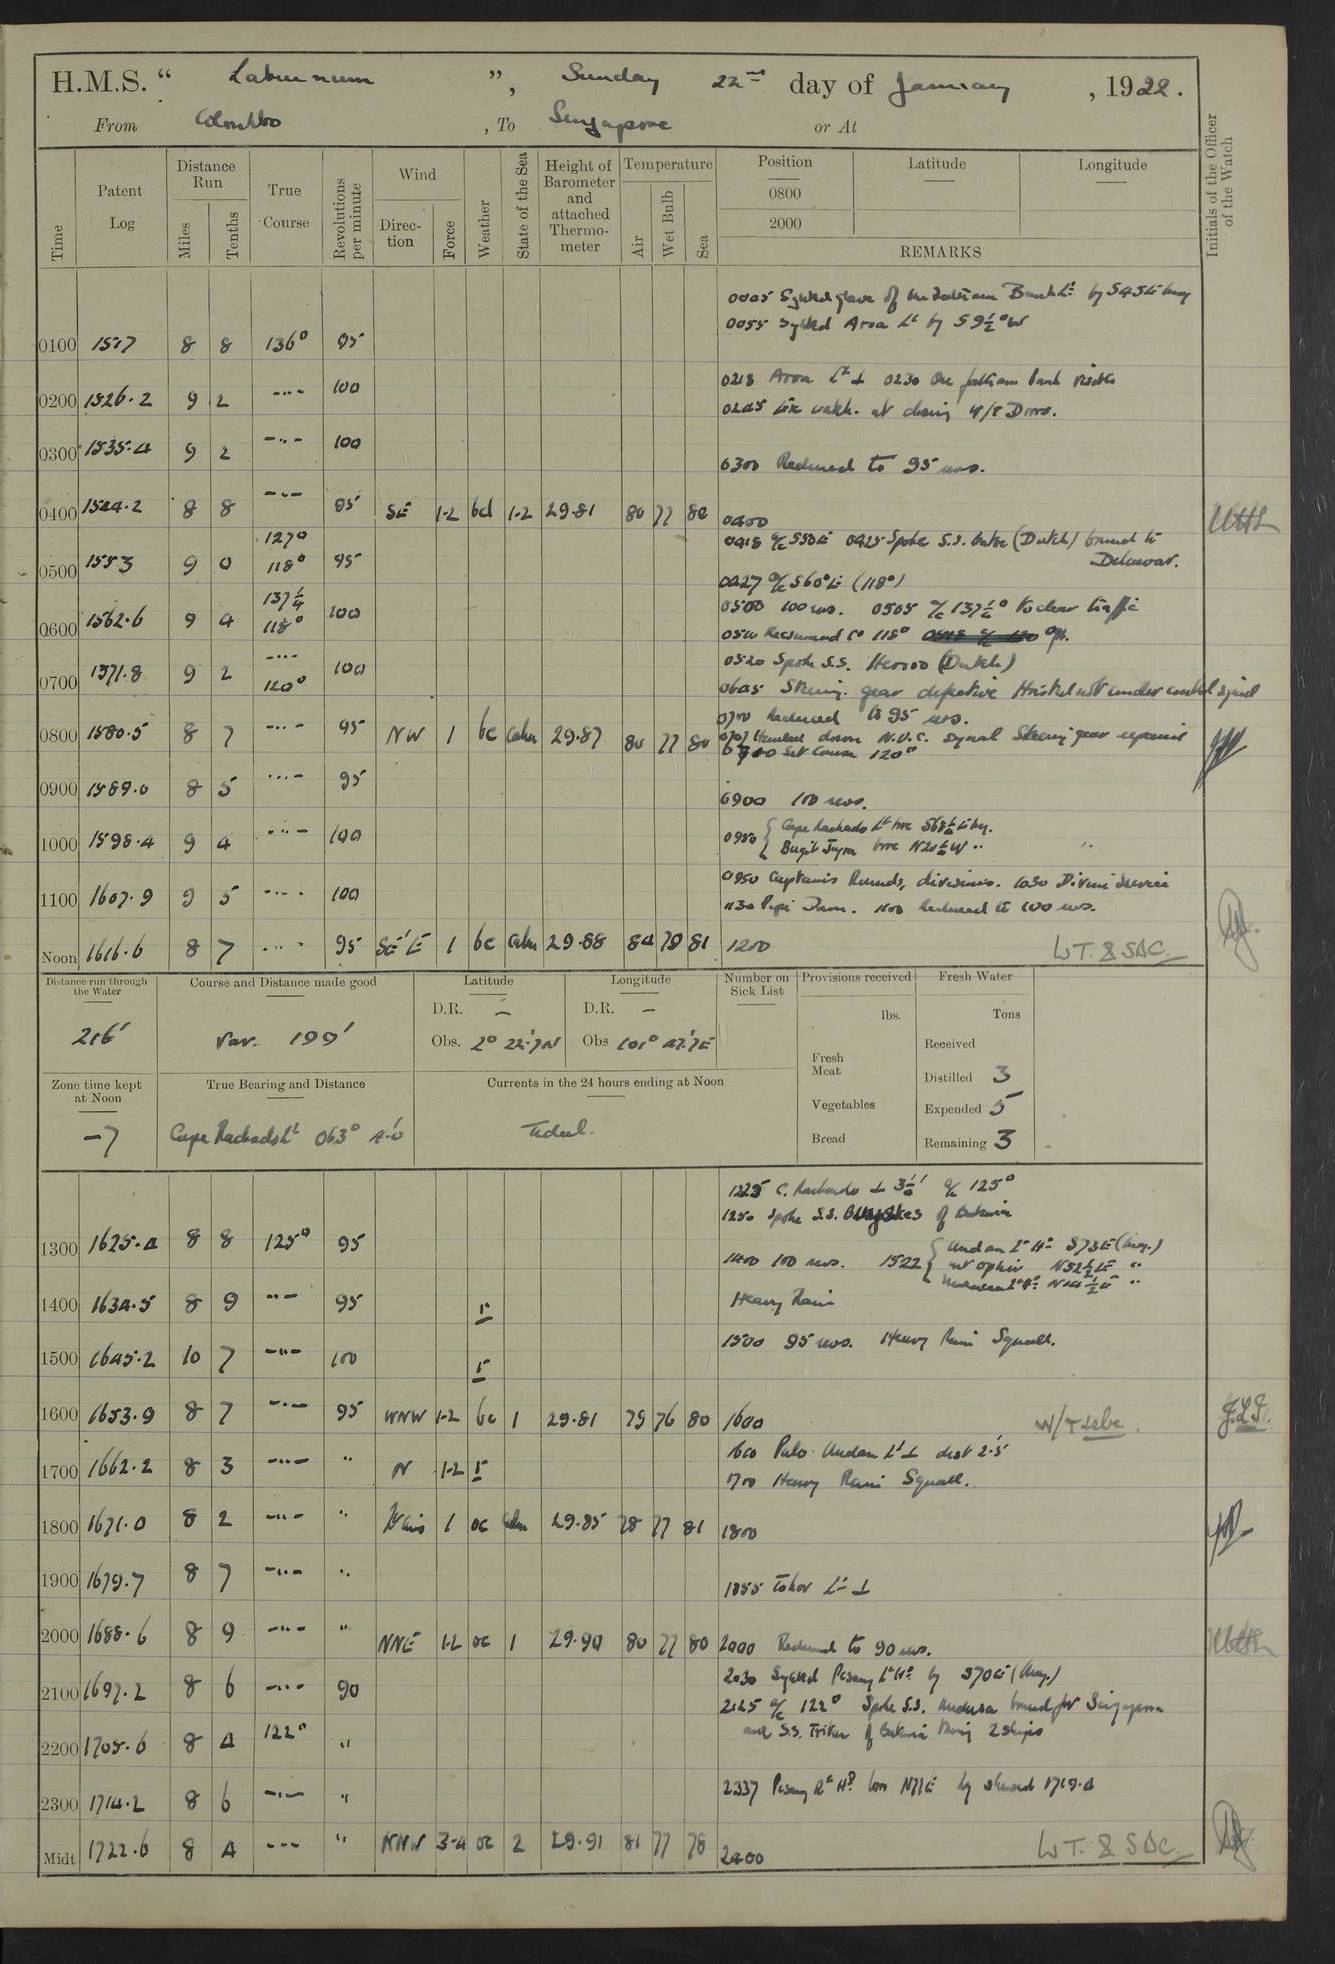 H.M.S. “ Laburnum ”, Sunday 22nd day of January, 1922.
From Colombo, To Singapore or At
Time
Patent Log
Distance Run
Miles
Tenths
True Course
Revolutions per minute
Wind
Direction
Force
Weather
State of the Sea
Height of Barometer and attached Thermometer
Temperature
Air
Wet Bulb
Sea
Position
Latitude
Longitude
0800
2000
REMARKS
Initials of the Officer of the Watch
0055 Sighted Aroa Lt by S 9½° W
0100 1517 8 8 136° 95
0218 Aroa Lt ⊥ 0230 One fathom bank
0200 1526.2 9 2 -"- 100
0245 watch. at closing W/T Doors.
0300 1535.4 9 2 -"- 100
0300 Reduced to 95 revs.
0400 1544.2 8 8 -"- 95 SE 1-2 bcl 1-2 29.81 80 77 80 0400
0418 a/c S53E 0425 Spoke S.S. (Dutch) bound to
Delawar.
0500 1553 9 0 127° 118° 95
0427 a/c S60°E (118°)
0500 100 revs. 0505 a/c 137½° to clear traffic
0600 1562.6 9 4 137¼ 118° 100
0510 Resumed Co 118°
0520 Spoke S.S. (Dutch)
0700 1571.8 9 2 -"- 120° 100
0605 Steering gear defective Hoisted not under control signal
0700 Reduced to 95 revs.
0800 1580.5 8 7 -"- 95 NW 1 bc Calm 29.87 80 77 80
0707 Hauled down N.U.C. signal Steering gear repaired
Set Course 120°
0900 1589.0 8 5 -"- 95
0900 100 revs.
1000 1598.4 9 4 -"- 100
0950 { Cape Rachado Lt bore S68½E by.
Bugit Jugra bore N20½W "
0950 Captains Rounds, divisions. 1030 Divine Service
1100 1607.9 9 5 -"- 100
1130 Pipe Down. 1100 Reduced to 100 revs.
Noon 1616.6 8 7 -"- 95 SE'E 1 bc Calm 29.88 84 79 81 1200 W.T. & SDC.
Distance run through the Water
216'
Course and Distance made good
Var. 199'
Latitude
D.R. –
Obs. 2° 22'.7N
Longitude
D.R. –
Obs 101° 47'.7E
Number on Sick List
Provisions received
lbs.
Fresh Meat
Vegetables
Bread
Fresh Water
Tons
Received
Distilled 3
Expended 5
Remaining 3
Zone time kept at Noon
–7
True Bearing and Distance
Cape Rachado Lt 063° 4'.0
Currents in the 24 hours ending at Noon
Tidal.
1225 C. Rachado ⊥ 3½' a/c 125°
1250 Spoke S.S. of Batavia
1300 1625.4 8 8 125° 95
1400 100 revs. 1522 { Undan Lt Ho S73E (mag.)
Mt Ophir N52½E "
N14½E "
1400 1634.5 8 9 -"- 95 r
Heavy Rain
1500 95 revs. Heavy Rain Squall.
1500 1645.2 10 7 -"- 100 r
1600 1653.9 8 7 -"- 95 WNW 1-2 bc 1 29.81 79 76 80 1600
1610 Pulo Undan Lt ⊥ dist 2'.5
1700 1662.2 8 3 -"- " N 1-2 r
1700 Heavy Rain Squall.
1800 1671.0 8 2 -"- " Airs 1 oc Calm 29.85 78 77 81 1800
1900 1679.7 8 7 -"- "
1855 Tohor Lt ⊥
2000 1688.6 8 9 -"- " NNE 1-2 oc 1 29.90 80 77 80 2000 Reduced to 90 revs.
2030 Sighted Pisang Lt Ho by S70E (Mag.)
2100 1697.2 8 6 -"- 90
2125 a/c 122° Spoke S.S. Medusa bound for Singapore
and S.S. Triton of Batavia towing 2 ships
2200 1705.6 8 4 122° "
2337 Pisang Lt Ho bore N71E by 1719.4
2300 1714.2 8 6 -"- "
Midt 1722.6 8 4 -"- " NNW 3-4 oc 2 29.91 81 77 78 2400 W.T. & SDC.